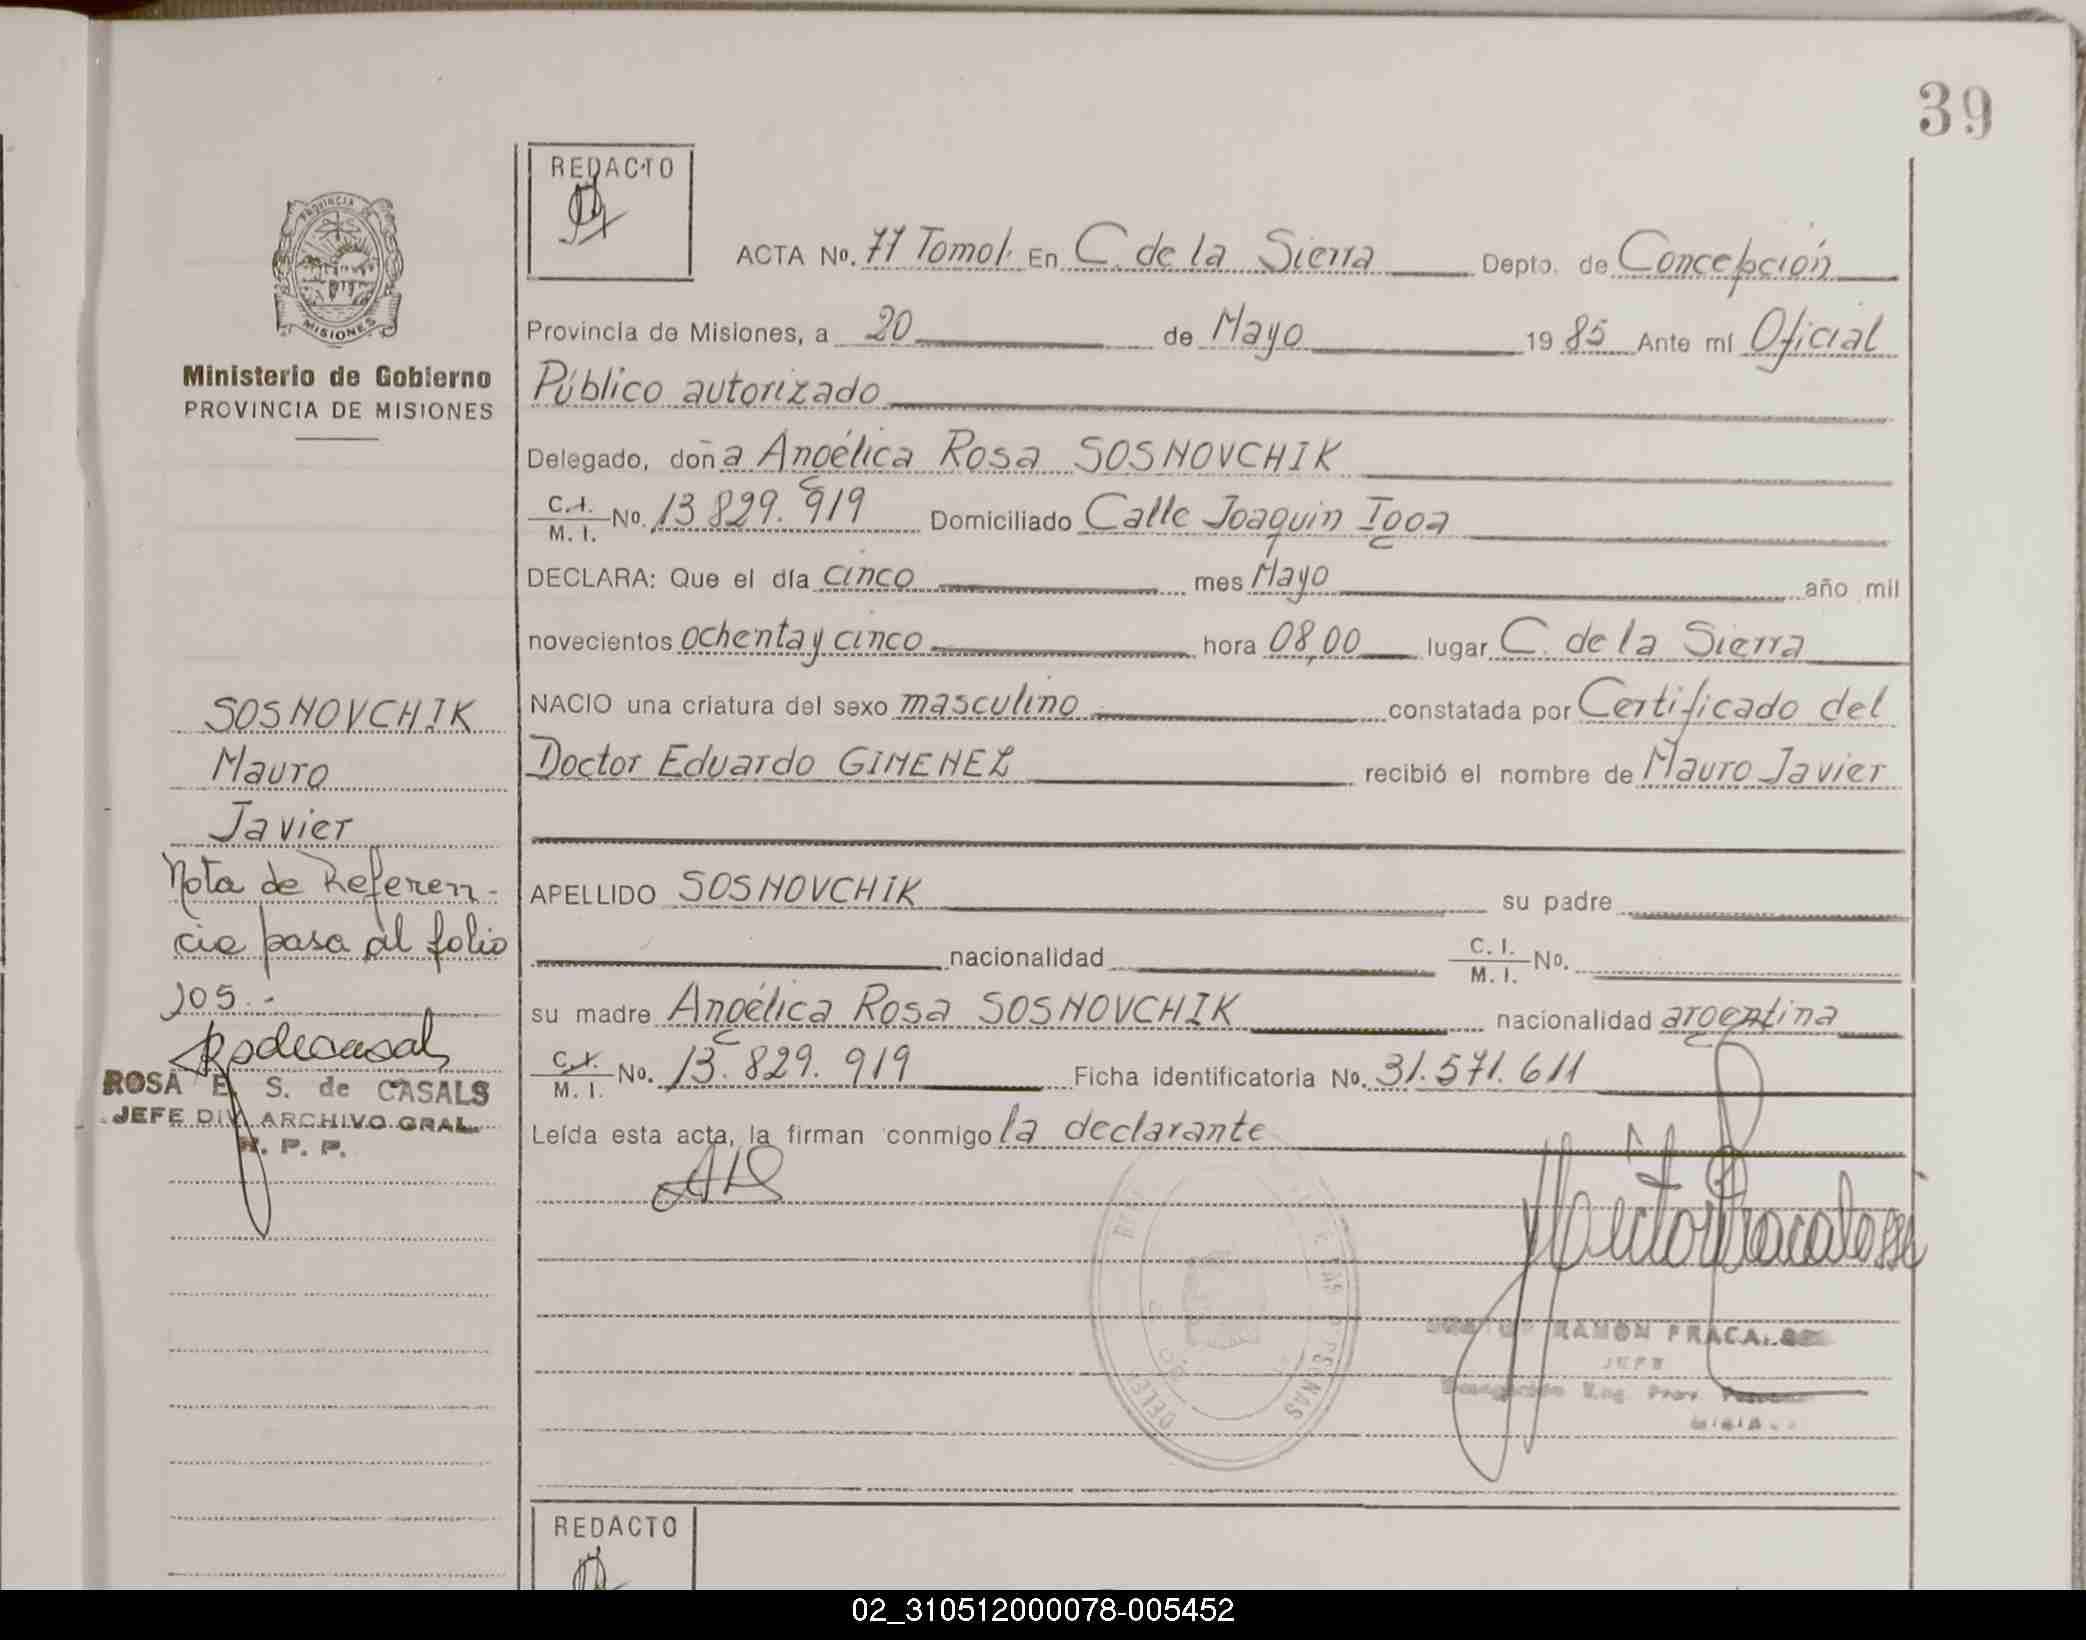 39
REDACTO
ACTA No. 77 Tomo I. En C. de la Sierra Depto. de Concepción
PROVINCIA DE
MISIONES
Provincia de Misiones, a 20 de Mayo 1985 Ante mí Oficial
Ministerio de Gobierno
PROVINCIA DE MISIONES
Público autorizado
Delegado, doña Angélica Rosa SOSNOVCHIK
C.I. / M. I. No. 13 829. 919 Domiciliado Calle Joaquin Igoa
DECLARA: Que el día cinco mes Mayo año mil
novecientos ochenta y cinco hora 08,00 lugar C. de la Sierra
NACIO una criatura del sexo masculino constatada por Certificado del
Doctor Eduardo GIMENEZ recibió el nombre de Mauro Javier
APELLIDO SOSNOVCHIK su padre
nacionalidad C. I. / M. I. No.
su madre Angélica Rosa SOSNOVCHIK nacionalidad argentina
C.I. / M. I. No. 13. 829. 919 Ficha identificatoria No. 31. 571. 611
Leída esta acta, la firman conmigo la declarante
SOSNOVCHIK
Mauro
Javier
Nota de Referen-
cia pasa al folio
105.-
ROSA E. S. de CASALS
JEFE DIV. ARCHIVO GRAL.
R. P. P.
RAMON FRACA
JEFE
REDACTO
02_310512000078-005452